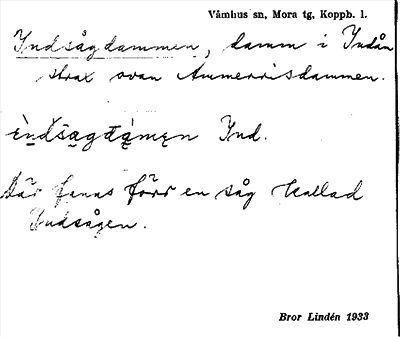 Våmhus sn, Mora tg, Koppb. l.
Indsågdammen, damm i Indån
strax ovan Ammerrisdammen.
Ind.
Där fanns förr en såg kallad
Indsågen.
Bror Lindén 1933